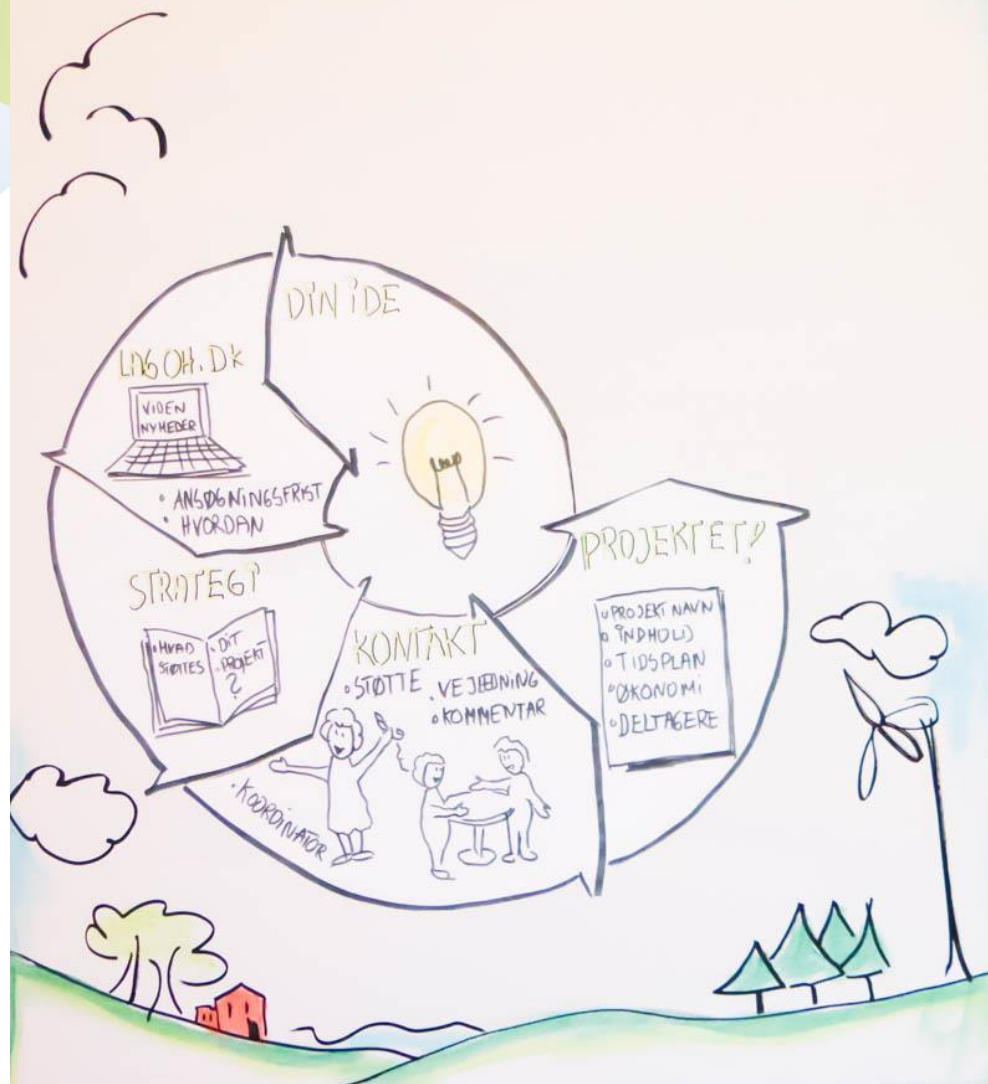 DIN IDE
LAGOH.DK
VIDEN
NYHEDER
• ANSØGNINGSFRIST
• HVORDAN
STRATEGI
• HVAD
STØTTES
• DIT
• PROJEKT
?
KONTAKT
• STØTTE
• VEJLEDNING
• KOMMENTAR
• KOORDINATOR
PROJEKTET!
• PROJEKT NAVN
• INDHOLD
• TIDSPLAN
• ØKONOMI
• DELTAGERE